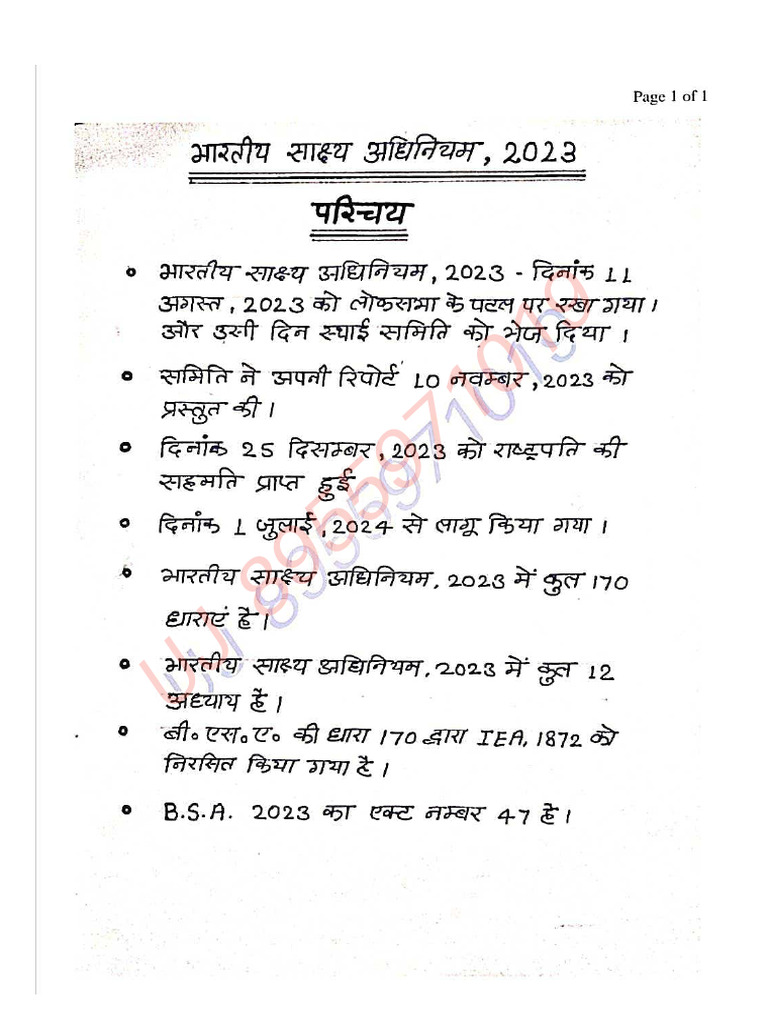 Page 1 of 1
भारतीय साक्ष्य अधिनियम, 2023
परिचय
• भारतीय साक्ष्य अधिनियम, 2023 - दिनांक 11
अगस्त, 2023 को लोकसभा के पटल पर रखा गया।
और उसी दिन स्थाई समिति को भेज दिया ।
• समिति ने अपनी रिपोर्ट 10 नवम्बर, 2023 को
प्रस्तुत की।
• दिनांक 25 दिसम्बर, 2023 को राष्ट्रपति की
सहमति प्राप्त हुई
• दिनांक 1 जुलाई, 2024 से लागू किया गया।
• भारतीय साक्ष्य अधिनियम, 2023 में कुल 170
धाराएं है।
• भारतीय साक्ष्य अधिनियम, 2023 में कुल 12
अध्याय है।
• बी॰ एस॰ ए॰ की धारा 170 द्वारा IEA, 1872 को
निरसित किया गया है।
• B.S.A. 2023 का एक्ट नम्बर 47 है।
UJ 8955971019